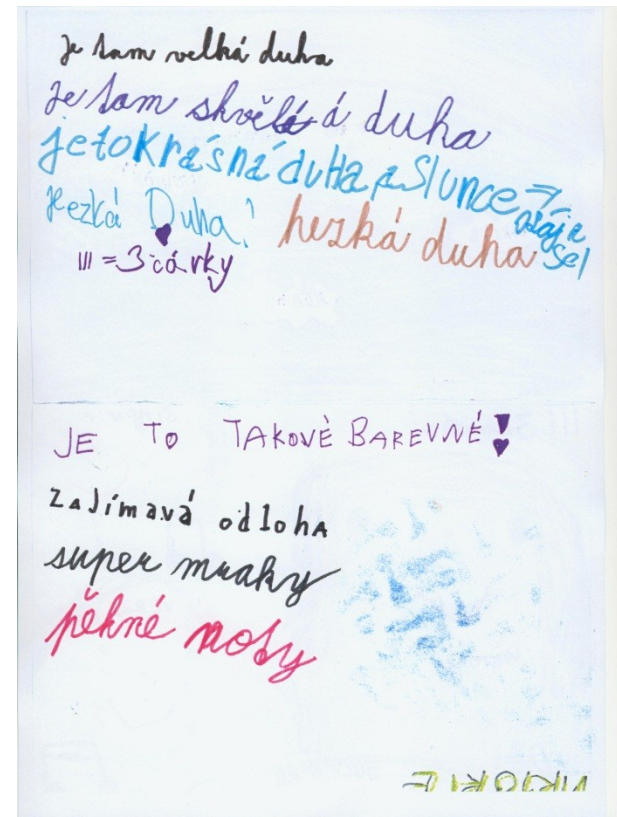 je tam velká duha
je tam skvělá á duha
jetokrásná duha a Slunce
Hezká Duha!
hezká duha
III = 3 čárky
JE TO TAKOVÉ BAREVNÉ!
zajímavá odloha
super mraky
pěkné nosy